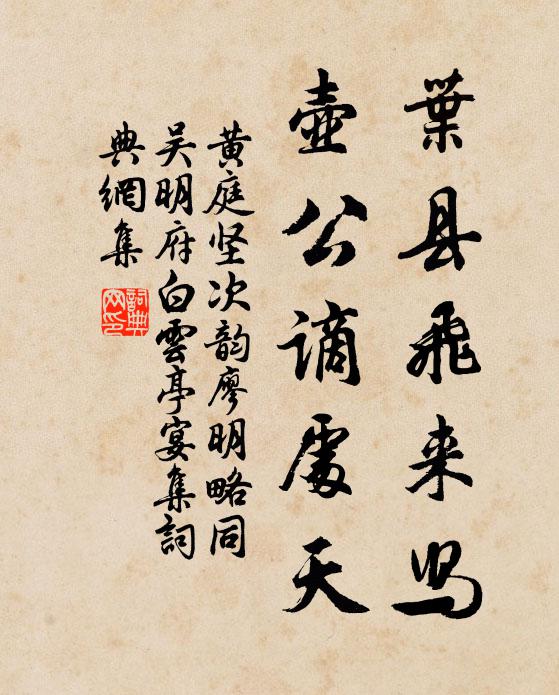 葉县飛来舄
壺公謫處天
黄庭坚次韵廖明略同
吴明府白雲亭宴集詞
典網集
詞典
网印